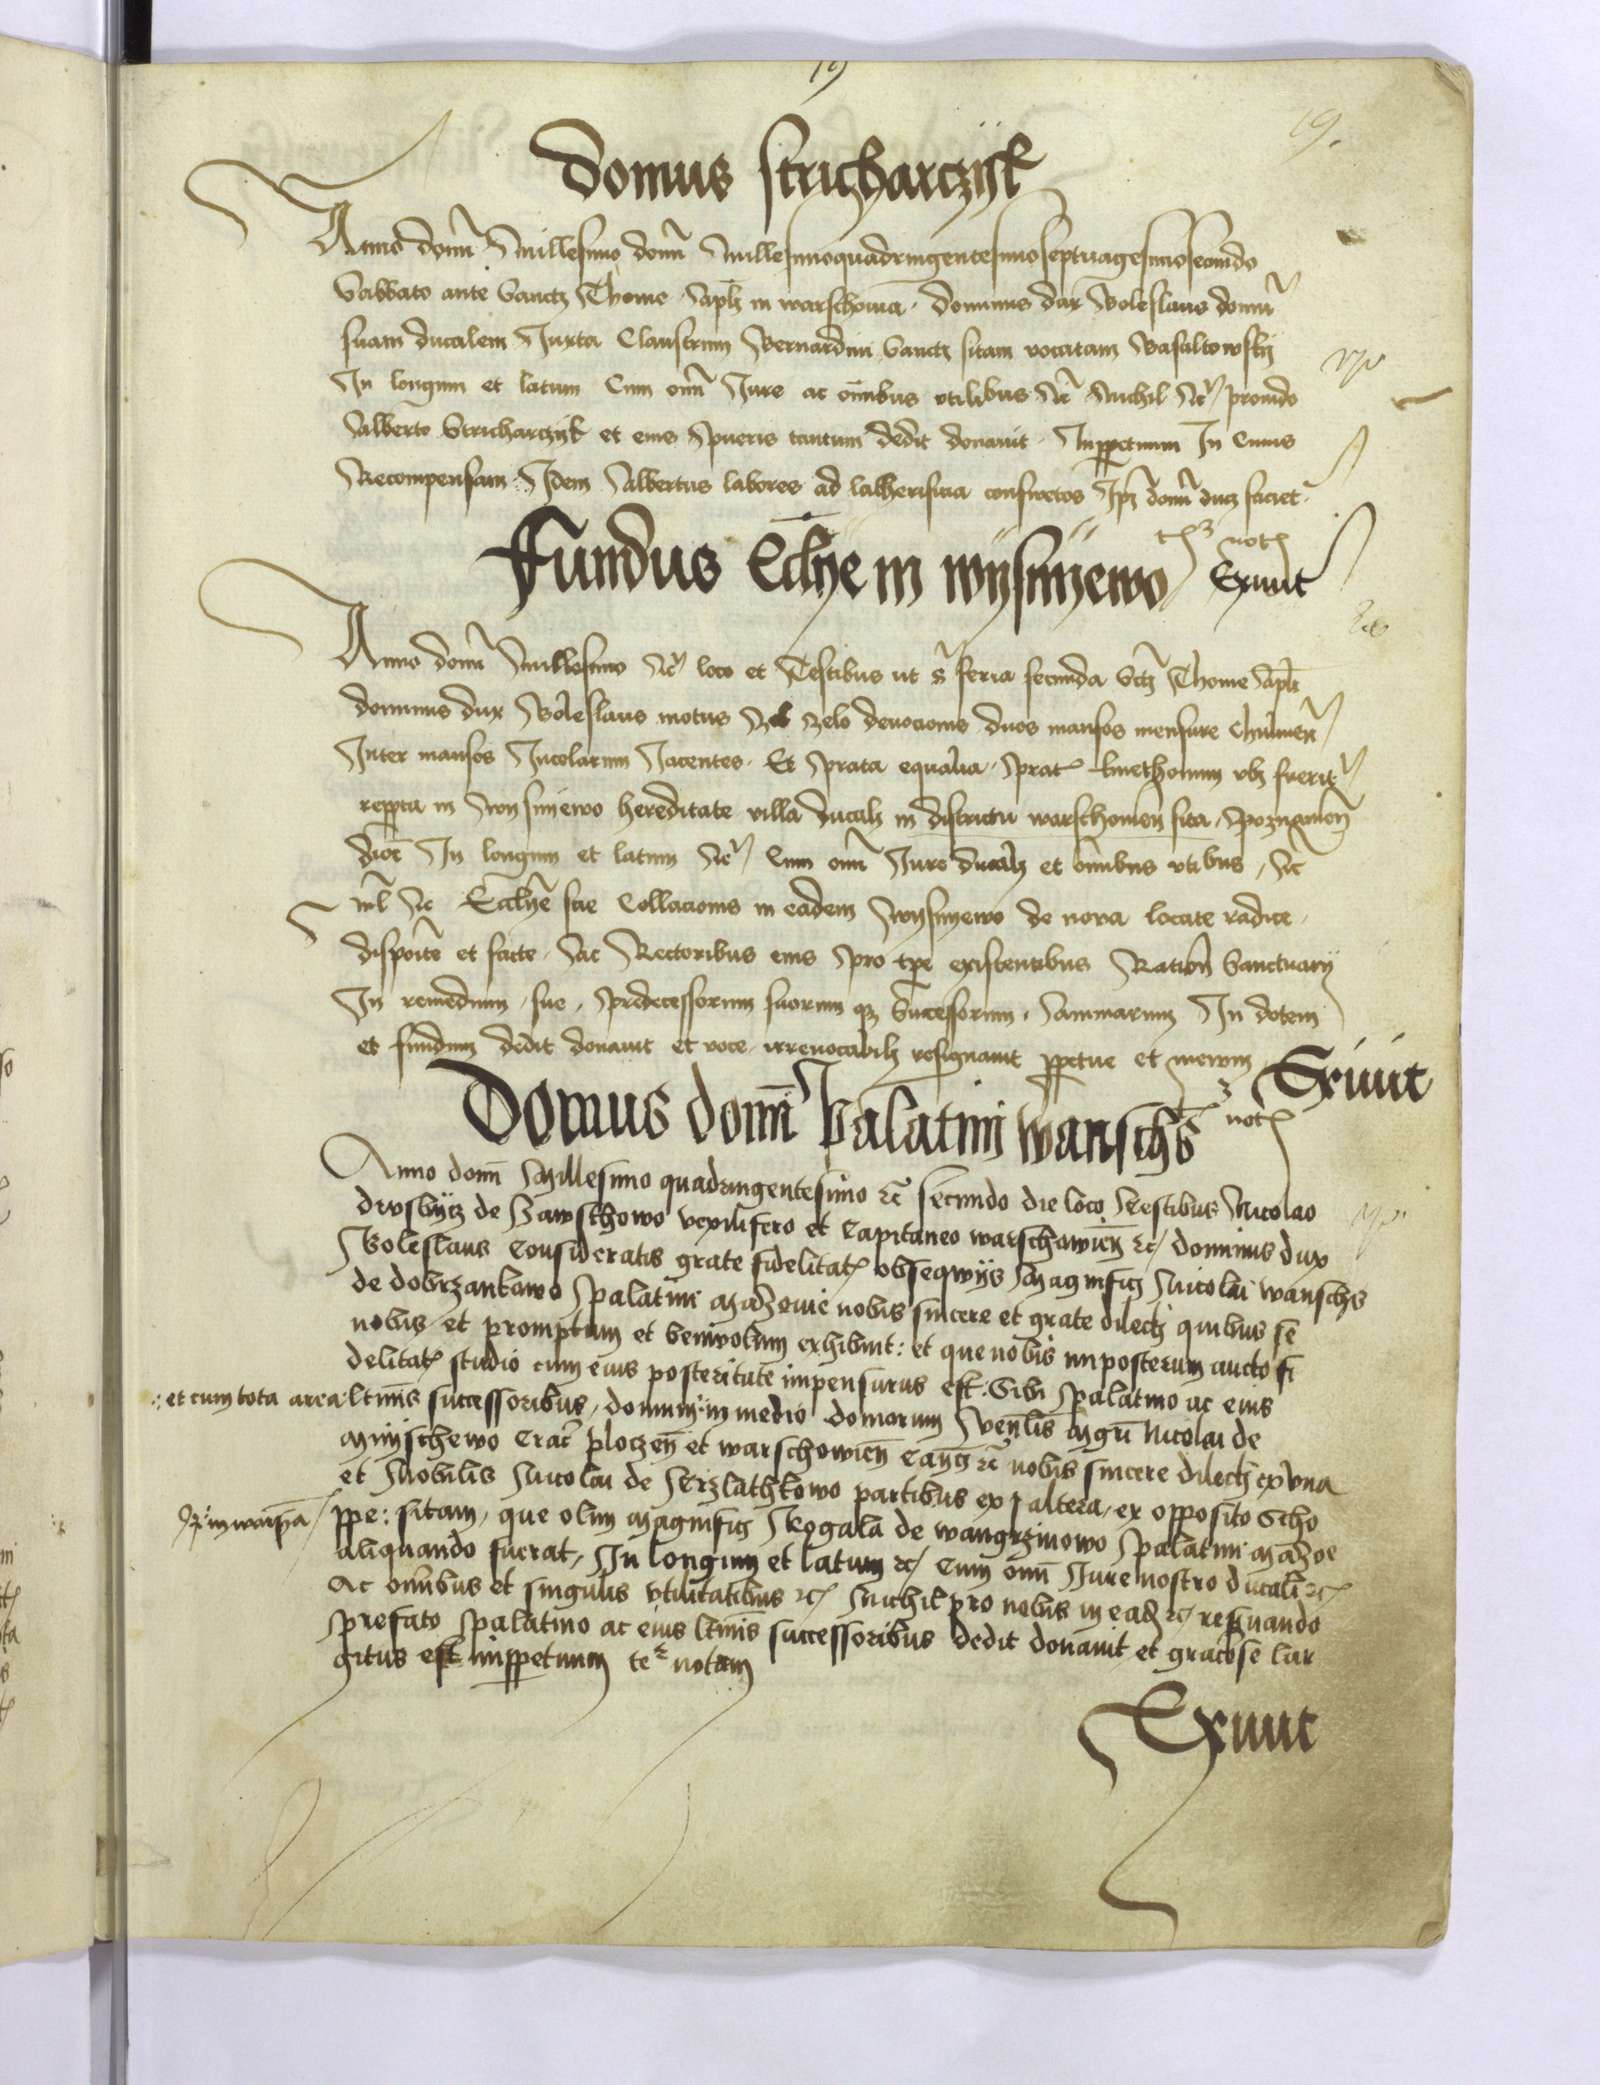 19
19.
Domus Stricharczÿk
Anno domi Millesimo domi Millesimoquadringentesimoseptuagesimosecundo
Sabbato ante Sancti Thome Apli in warschouia. Dominus dux Boleslaus domu
suam ducalem Juxta Claustrum Bernardini Sancti sitam vocatam
In longum et latum Cum omi Jure ac omibus vtilibus &c Nichil &c prouido
Alberto Stricharczÿk et eius pueris tantum dedit donauit. Inppetuum In Cuius
Recompensam Idem Albertus labores ad laterificia consuetos Ipi domi duci faciet.
Fundus Ecclie in wÿsnÿewo
not
Exiuit
Anno domi Millesimo &c loco et Testibus ut s feria secunda Scti Thome Apli
dominus dux Boleslaus motus zelo deuocionis duos mansos mensure Chulmen
Inter mansos Incolarum Jacentes. Et prata equalia prat kmethonum vbi fuerit
reppta in Wysnÿewo hereditate villa ducali in districtu warschouien sita, Poznanien
dioc In longum et latum &c Cum omi Jure ducali et omibus vtibus, &c
nil &c Ecclie sue Collacionis in eadem Wÿsnÿewo de noua locate radice.
disposite et facte. Ac Rectoribus eius pro tpe existentibus Ration Sanctuarÿ
In remedium, sue, predecessorum suorum qz Successorum. Animarum In dotem
et fundum dedit donauit et voce irreuocabili resignauit ppetue et meuum
Exiuit
Domus domi Palatini wansch
not
Anno domi Millesimo quadringentesimo &c secundo die loco Testibus Nicolao
de Zawschowo vexilifero et Capitaneo warschowien &c dominus dux
Boleslaus Consideratis grate fidelitat obseqwÿs Magnifici Nicolai wansch
de dobrzankowo Palatini Mazouie nobis sincere et grate dilecti quibus se
nobis et promptum et beniuolum exhibuit: et que nobis imposterum aucto fi
delitat studio cum eius posteritate impensurus est. Sibi Palatino ac eius
et cum tota area ltimis successoribus, domum in medio domorum Venlis Mgri Nicolai de
Mnÿschewo Crac ploczen et warschowien Canci &c nobis sincere dilecti ex vna
et Nobilis Nicolai de partibus ex altera, ex opposito Scho
ppe: sitam, que olim Magnifici Rogala de wangrzinowo Palatini Mazoe
aliquando fuerat, In longum et latum &c Cum omi Jure nostro ducali &c
Ac omibus et singulis vtilitatibus &c Nichil pro nobis in ead &c resruando
Prefato Palatino ac eius ltimis successoribus dedit donauit et graciose lar
gitus est inppetuum te notam
Exiuit